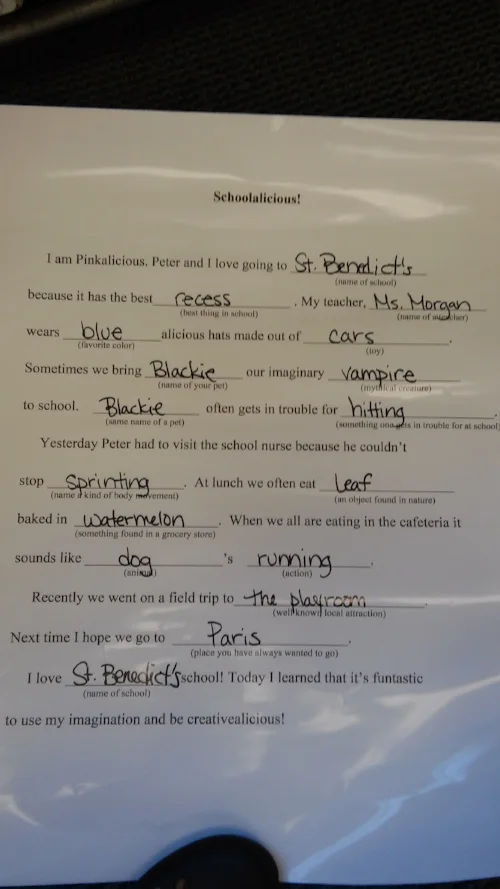 Schoolalicious!
I am Pinkalicious. Peter and I love going to St. Benedict's
(name of school)
because it has the best recess. My teacher, Ms. Morgan
(best thing in school) (name of teacher)
wears blue alicious hats made out of cars.
(favorite color) (toy)
Sometimes we bring Blackie our imaginary vampire
(name of your pet) (mythical creature)
to school. Blackie often gets in trouble for hitting.
(same name of a pet) (something one gets in trouble for at school)
Yesterday Peter had to visit the school nurse because he couldn't
stop sprinting. At lunch we often eat leaf
(name a kind of body movement) (an object found in nature)
baked in watermelon. When we all are eating in the cafeteria it
(something found in a grocery store)
sounds like dog's running.
(animal) (action)
Recently we went on a field trip to the playroom.
(well known local attraction)
Next time I hope we go to Paris.
(place you have always wanted to go)
I love St. Benedict's school! Today I learned that it's funtastic
(name of school)
to use my imagination and be creativealicious!